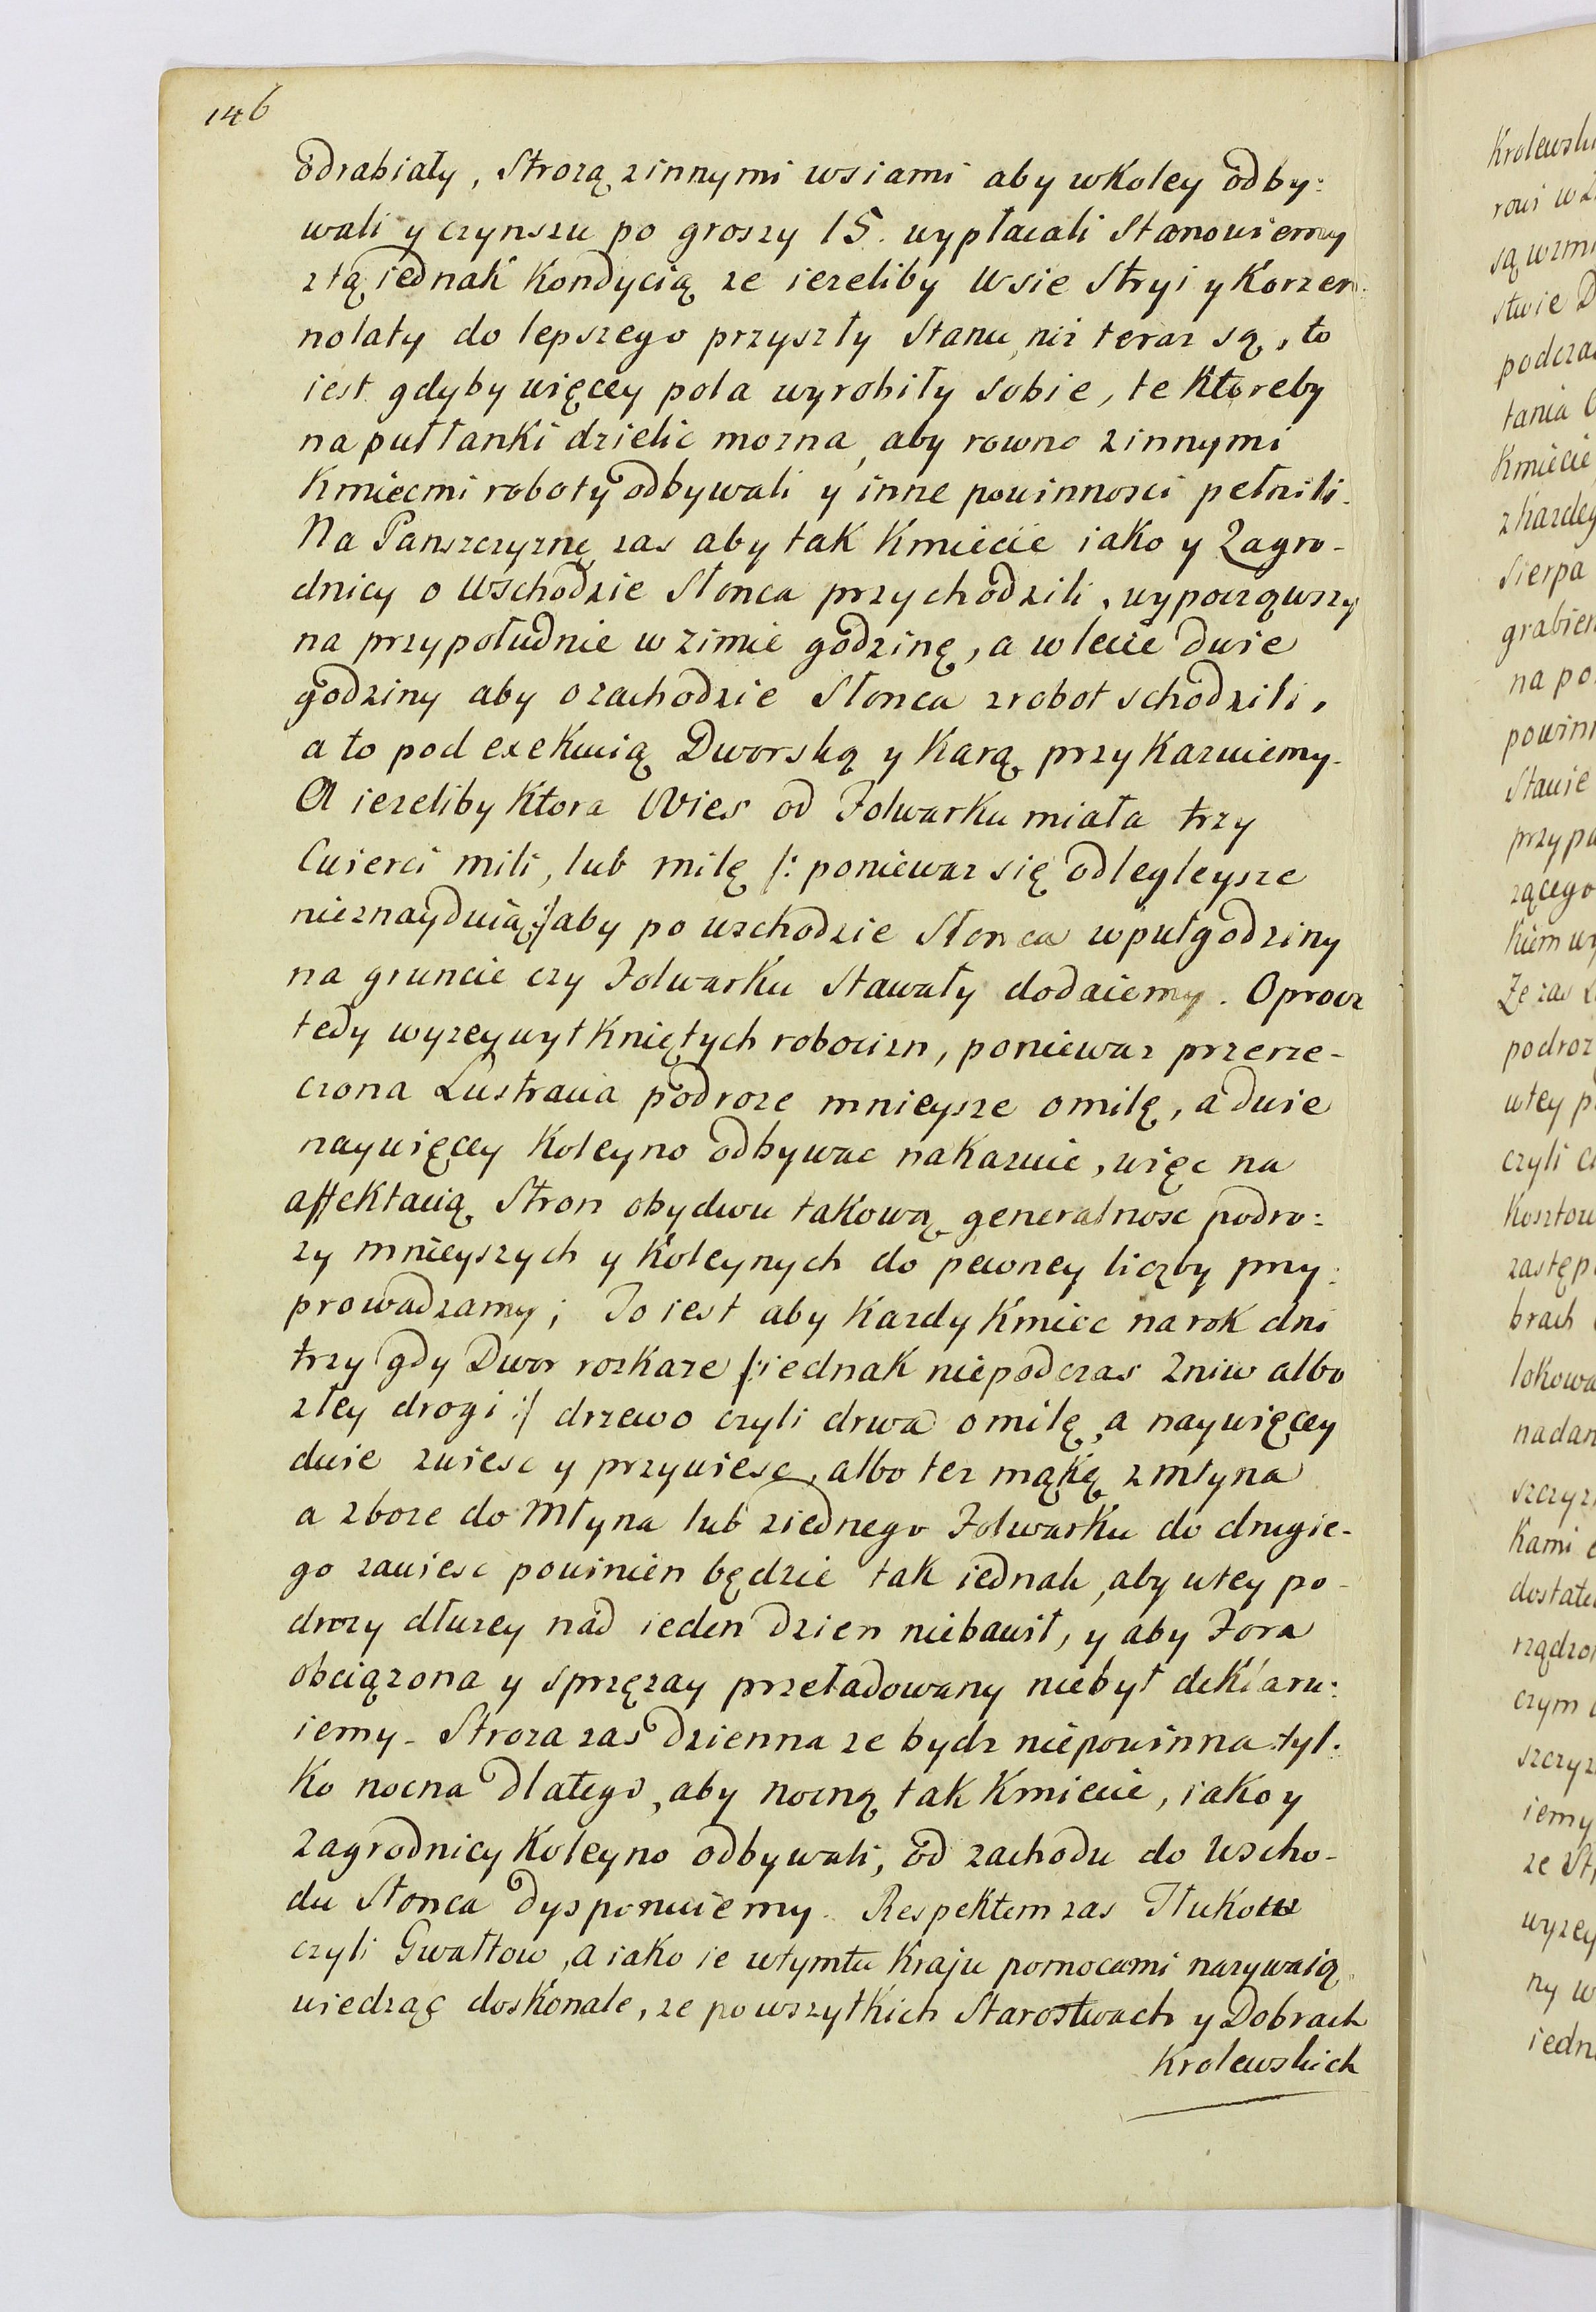 146
odrabiały, Strozą zinnymi wsiami aby wkoley odby:
wali y czynszu po groszy 15. wypłacali Stanowiemy
ztą iednak Kondycią ze iezeliby Wsie Stryi y Korzen:
nolaty do lepszego przyszły Stanu, niz teraz są, to
iest gdyby więcey pola wyrobiły sobie, te Ktoreby
na pułłanki dzielic mozna, aby rowno zinnymi
Kmiecmi roboty odbywali y inne powinnosci pełnili.
Na Panszczyznę zas aby tak Kmiecie iako y Zagro-
dnicy o Wschodzie Słonca przychodzili, wypocząwszy
na przypołudnie w zimie godzinę, a w lecie dwie
godziny aby o zachodzie Słonca zrobot schodzili,
a to pod exekucią Dworską y Karą przykazuiemy.
A iezeliby Ktora Wies od Folwarku miała trzy
Cwierci mili, lub milę /: poniewaz się odlegleysze
nieznayduią :/ aby po wschodzie Słonca wpułgodziny
na gruncie czy Folwarku Stawały dodaiemy. Oprocz
tedy wyzeywytkniętych robocizn, poniewaz przerze-
czona Lustracia podroze mnieysze o milę, a dwie
naywięcey Koleyno odbywac nakazuie, więc na
affektacią Stron obydwu takową generalnosc podro:
zy mnieyszych y Koleynych do pewney liczby przy:
prowadzamy; To iest aby Kazdy Kmiec na rok dni
trzy gdy Dwor rozkaze /: iednak niepodczas Zniw albo
złey drogi :/ drzewo czyli drwa o milę, a naywięcey
dwie zwiesc y przywiesc, albo tez mąkę zmłyna
a zboze do Młyna lub ziednego Folwarku do drugie-
go zawiesc powinien będzie tak iednak, aby wtey po-
drozy dłuzey nad ieden dzien niebawił, y aby Fora
obciązona y sprzęzay przeładowany niebył deklaru:
iemy. Stroza zas dzienna ze bydz niepowinna tyl:
Ko nocna dlatego, aby nocną tak Kmiecie, iako y
Zagrodnicy Koleyno odbywali, od zachodu do Wscho-
du Słonca dysponuiemy. Respektem zas Tłukow
czyli Gwałtow, a iako ie wtymtu Kraju pomocami nazywaią,
wiedząc doskonale, ze po wszytkich Starostwach y Dobrach
Krolewskich
Krolewski
rowi w
stwie D
podcza
tania
Kmiecie
z kazdeg
Sierpa
grabien
na po
powinn
Stawie
przypa
Kiem wy
Ze zas
podroz
wtey p
czyli
Kosztow
zastęp
brach
lokowa
nadan
szczyz
Kami
rządzo
czym
szczyz
iemy
ze St
wyzey
ny w
iedn